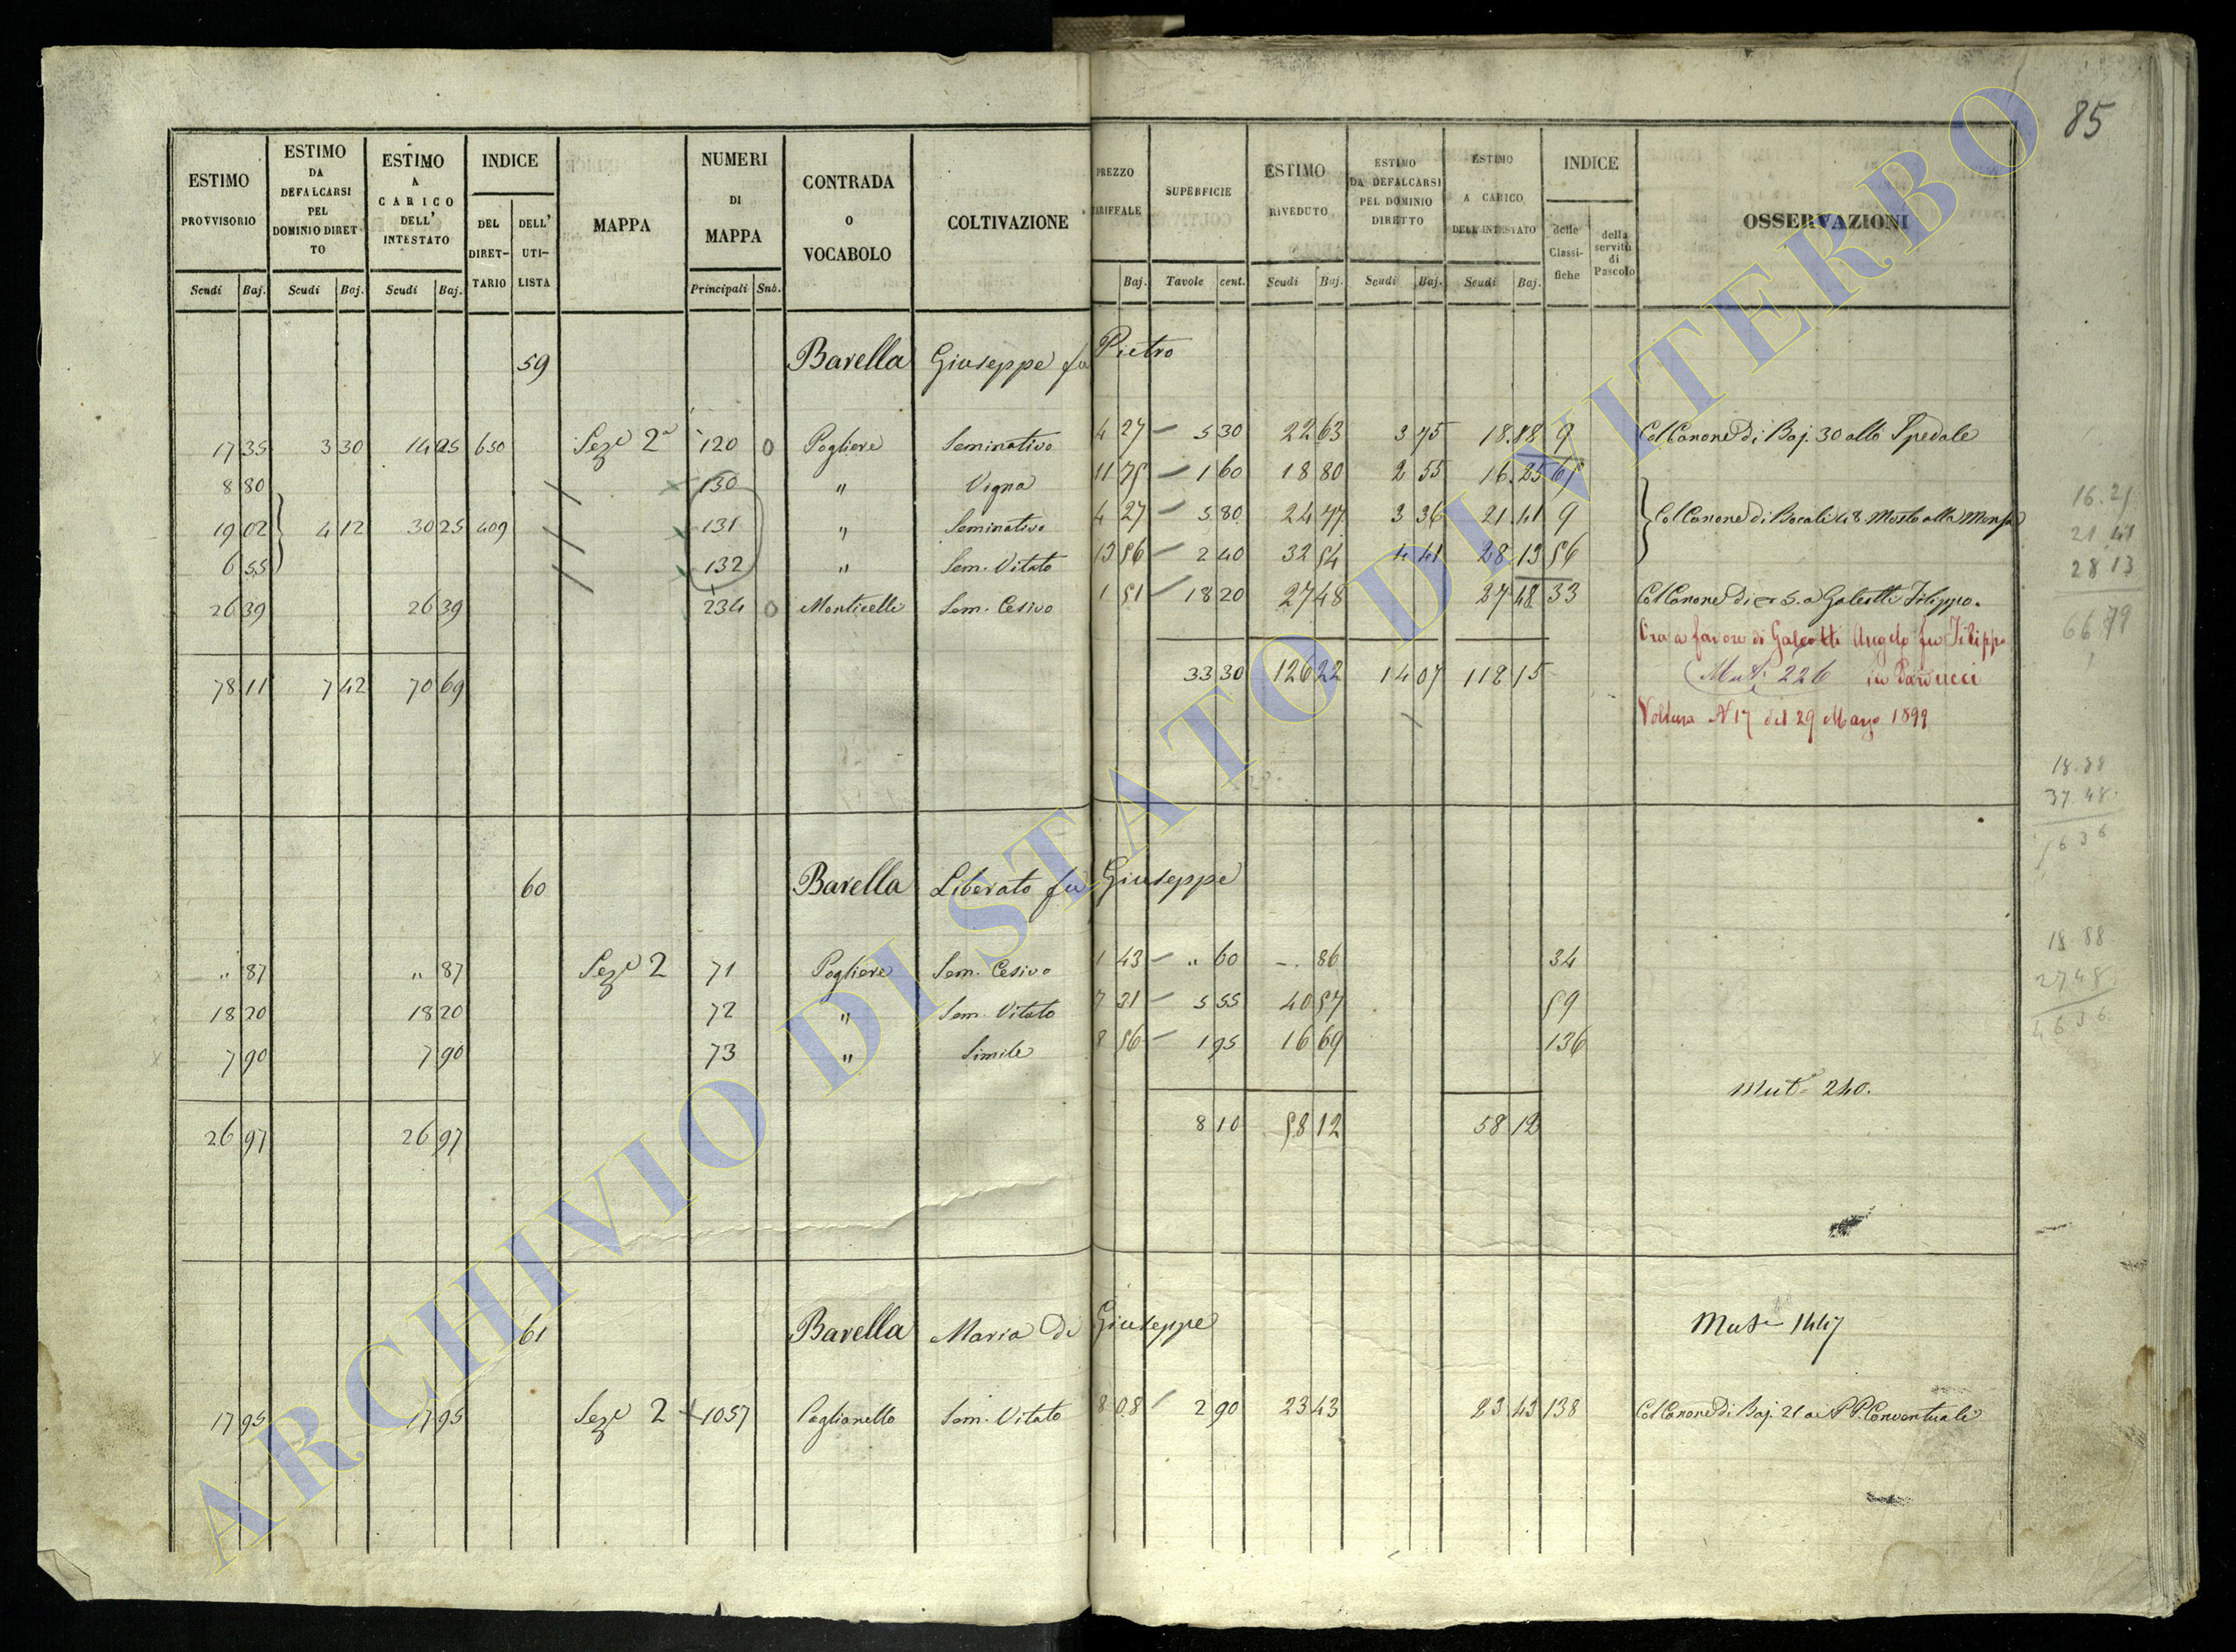 85
ESTIMO PROVVISORIO | ESTIMO DA DEFALCARSI PEL DOMINIO DIRETTO | ESTIMO A CARICO DELL' INTESTATO | INDICE | MAPPA | NUMERI DI MAPPA | CONTRADA O VOCABOLO | COLTIVAZIONE | PREZZO TARIFFALE | SUPERFICIE | ESTIMO RIVEDUTO | ESTIMO DA DEFALCARSI PEL DOMINIO DIRETTO | ESTIMO A CARICO DELL'INTESTATO | INDICE | OSSERVAZIONI
DEL DIRETTARIO | DELL' UTILISTA | delle Classifiche | della servitù di Pascolo
Scudi Baj. | Scudi Baj. | Scudi Baj. | Principali Sub. | Baj. | Tavole cent. | Scudi Baj. | Scudi Baj. | Scudi Baj.
59 Barella Giuseppe fu Pietro
17 35 | 3 30 | 14 05 | 650 | Seze 2a | 120 | 0 | Pogliere | Seminativo | 4 27 | 5 30 | 22 63 | 3 75 | 18.88 | 9 | Col Canone di Baj. 30 allo Spedale
8 80 | 130 | " | Vigna | 11 75 | 1 60 | 18 80 | 2 55 | 16.25 | 67
19 02 | 4 12 | 30 25 | 409 | 131 | " | Seminativo | 4 27 | 5 80 | 24 77 | 3 36 | 21.41 | 9 | Col Canone di Bocali 48 Mosto alla Mensa
6 55 | 132 | " | Sem. Vitato | 13 56 | 2 40 | 32 54 | 4 41 | 28 13 | 56
26 39 | 26 39 | 234 | 0 | Monticelli | Sem. Cesivo | 1 51 | 18 20 | 27 48 | 27 48 | 33 | Col Canone di 5. a Galeotti Filippo.
Ora a favore di Galeotti Angelo fu Filippo
78 11 | 7 42 | 70 69 | 33 30 | 126 22 | 14 07 | 112 15 | Mut. 226
Voltura N 17 del 29 Marzo 1899
16.25
21.41
28 13
66 79
18.88
37.48
18.88
27.48
46 36
60 Barella Liberato fu Giuseppe
" 87 | " 87 | Seze 2 | 71 | Pogliere | Sem. Cesivo | 1 43 | " 60 | -. 86 | 34
18 20 | 18 20 | 72 | " | Sem. Vitato | 7 31 | 5 55 | 40 57 | 59
7 90 | 7 90 | 73 | " | Simile | 8 56 | 1 95 | 16 69 | 136
Mut. 240.
26 97 | 26 97 | 8 10 | 58 12 | 58 12
61 Barella Maria di Giuseppe
Mut. 1447
17 95 | 17 95 | Seze 2 | 1057 | Poglianello | Sem. Vitato | 8 08 | 2 90 | 23 43 | 23 43 | 138 | Col Canone di Baj. 21 ai PP. Conventuali
ARCHIVIO DI STATO DI VITERBO